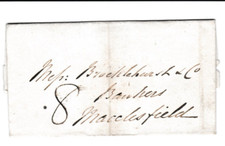 Messrs Brocklehurst & Co
Bankers
8 Macclesfield